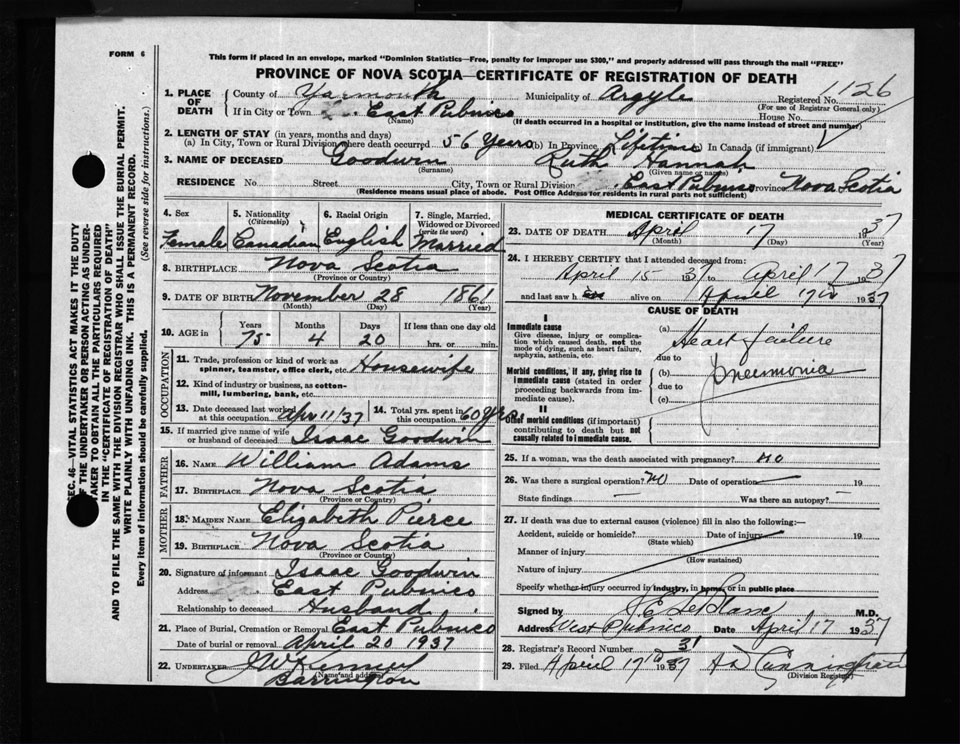 FORM 6
This form if placed in an envelope, marked "Dominion Statistics—Free, penalty for improper use $300," and properly addressed will pass through the mail "FREE"
PROVINCE OF NOVA SCOTIA—CERTIFICATE OF REGISTRATION OF DEATH
SEC. 46—VITAL STATISTICS ACT MAKES IT THE DUTY
OF THE UNDERTAKER OR PERSON ACTING AS UNDER-
TAKER TO OBTAIN ALL THE PARTICULARS REQUIRED
IN THE "CERTIFICATE OF REGISTRATION OF DEATH"
AND TO FILE THE SAME WITH THE DIVISION REGISTRAR WHO SHALL ISSUE THE BURIAL PERMIT.
WRITE PLAINLY WITH UNFADING INK. THIS IS A PERMANENT RECORD.
Every item of information should be carefully supplied. (See reverse side for instructions.)
1. PLACE OF DEATH County of Yarmouth Municipality of Argyle Registered No. 1126
(For use of Registrar General only)
If in City or Town East Pubnico House No.
(Name) (If death occurred in a hospital or institution, give the name instead of street and number)
2. LENGTH OF STAY (in years, months and days)
(a) In City, Town or Rural Division where death occurred 56 Years (b) In Province Lifetime In Canada (if immigrant)
3. NAME OF DECEASED Goodwin Ruth Hannah
(Surname) (Given name or names)
RESIDENCE No Street City, Town or Rural Division East Pubnico Province Nova Scotia
(Residence means usual place of abode. Post Office Address for residents in rural parts not sufficient)
4. Sex Female
5. Nationality (Citizenship) Canadian
6. Racial Origin English
7. Single, Married, Widowed or Divorced (write the word) Married
8. BIRTHPLACE Nova Scotia
(Province or Country)
9. DATE OF BIRTH November 28 1861
(Month) (Day) (Year)
10. AGE in Years Months Days If less than one day old
75 4 20 hrs. or min.
OCCUPATION
11. Trade, profession or kind of work as spinner, teamster, office clerk, etc. Housewife
12. Kind of industry or business, as cotton-mill, lumbering, bank, etc.
13. Date deceased last worked at this occupation Apr 11/37
14. Total yrs. spent in this occupation 60 yrs
15. If married give name of wife or husband of deceased Isaac Goodwin
FATHER
16. NAME William Adams
17. BIRTHPLACE Nova Scotia
(Province or Country)
MOTHER
18. MAIDEN NAME Elizabeth Pierce
19. BIRTHPLACE Nova Scotia
(Province or Country)
20. Signature of informant Isaac Goodwin
Address East Pubnico
Relationship to deceased Husband
21. Place of Burial, Cremation or Removal East Pubnico
Date of burial or removal April 20 1937
22. UNDERTAKER
(Name and address)
Barrington
MEDICAL CERTIFICATE OF DEATH
23. DATE OF DEATH April 17 1937
(Month) (Day) (Year)
24. I HEREBY CERTIFY that I attended deceased from:
April 15 1937 to April 17 1937
and last saw h alive on April 17 1937
CAUSE OF DEATH
I
Immediate cause
Give disease, injury or complication which caused death, not the mode of dying, such as heart failure, asphyxia, asthenia, etc.
(a) Heart failure
due to
Morbid conditions, if any, giving rise to immediate cause (stated in order proceeding backwards from immediate cause).
(b) Pneumonia
due to
(c)
II
Other morbid conditions (if important) contributing to death but not causally related to immediate cause.
25. If a woman, was the death associated with pregnancy? no
26. Was there a surgical operation? no Date of operation —
State findings — Was there an autopsy? — 19
27. If death was due to external causes (violence) fill in also the following:—
Accident, suicide or homicide? Date of injury 19
(State which)
Manner of injury
(How sustained)
Nature of injury
Specify whether injury occurred in industry, in home, or in public place
Signed by J.E. LeBlanc M.D.
Address West Pubnico Date April 17 1937
28. Registrar's Record Number
29. Filed April 17 1937
(Division Registrar)